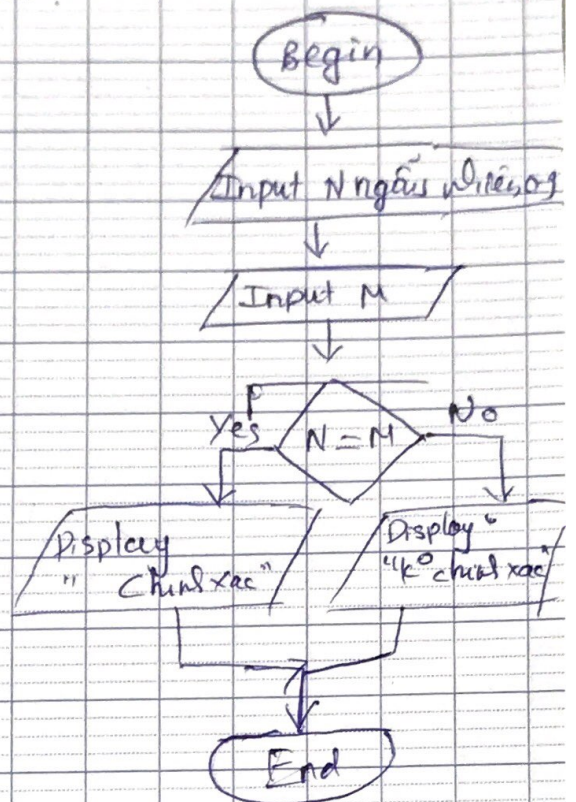 Begin
Input N ngẫu
Input M
Yes
No
N = M
Display
" Chính xac"
Display "
"K° chính xac"
End